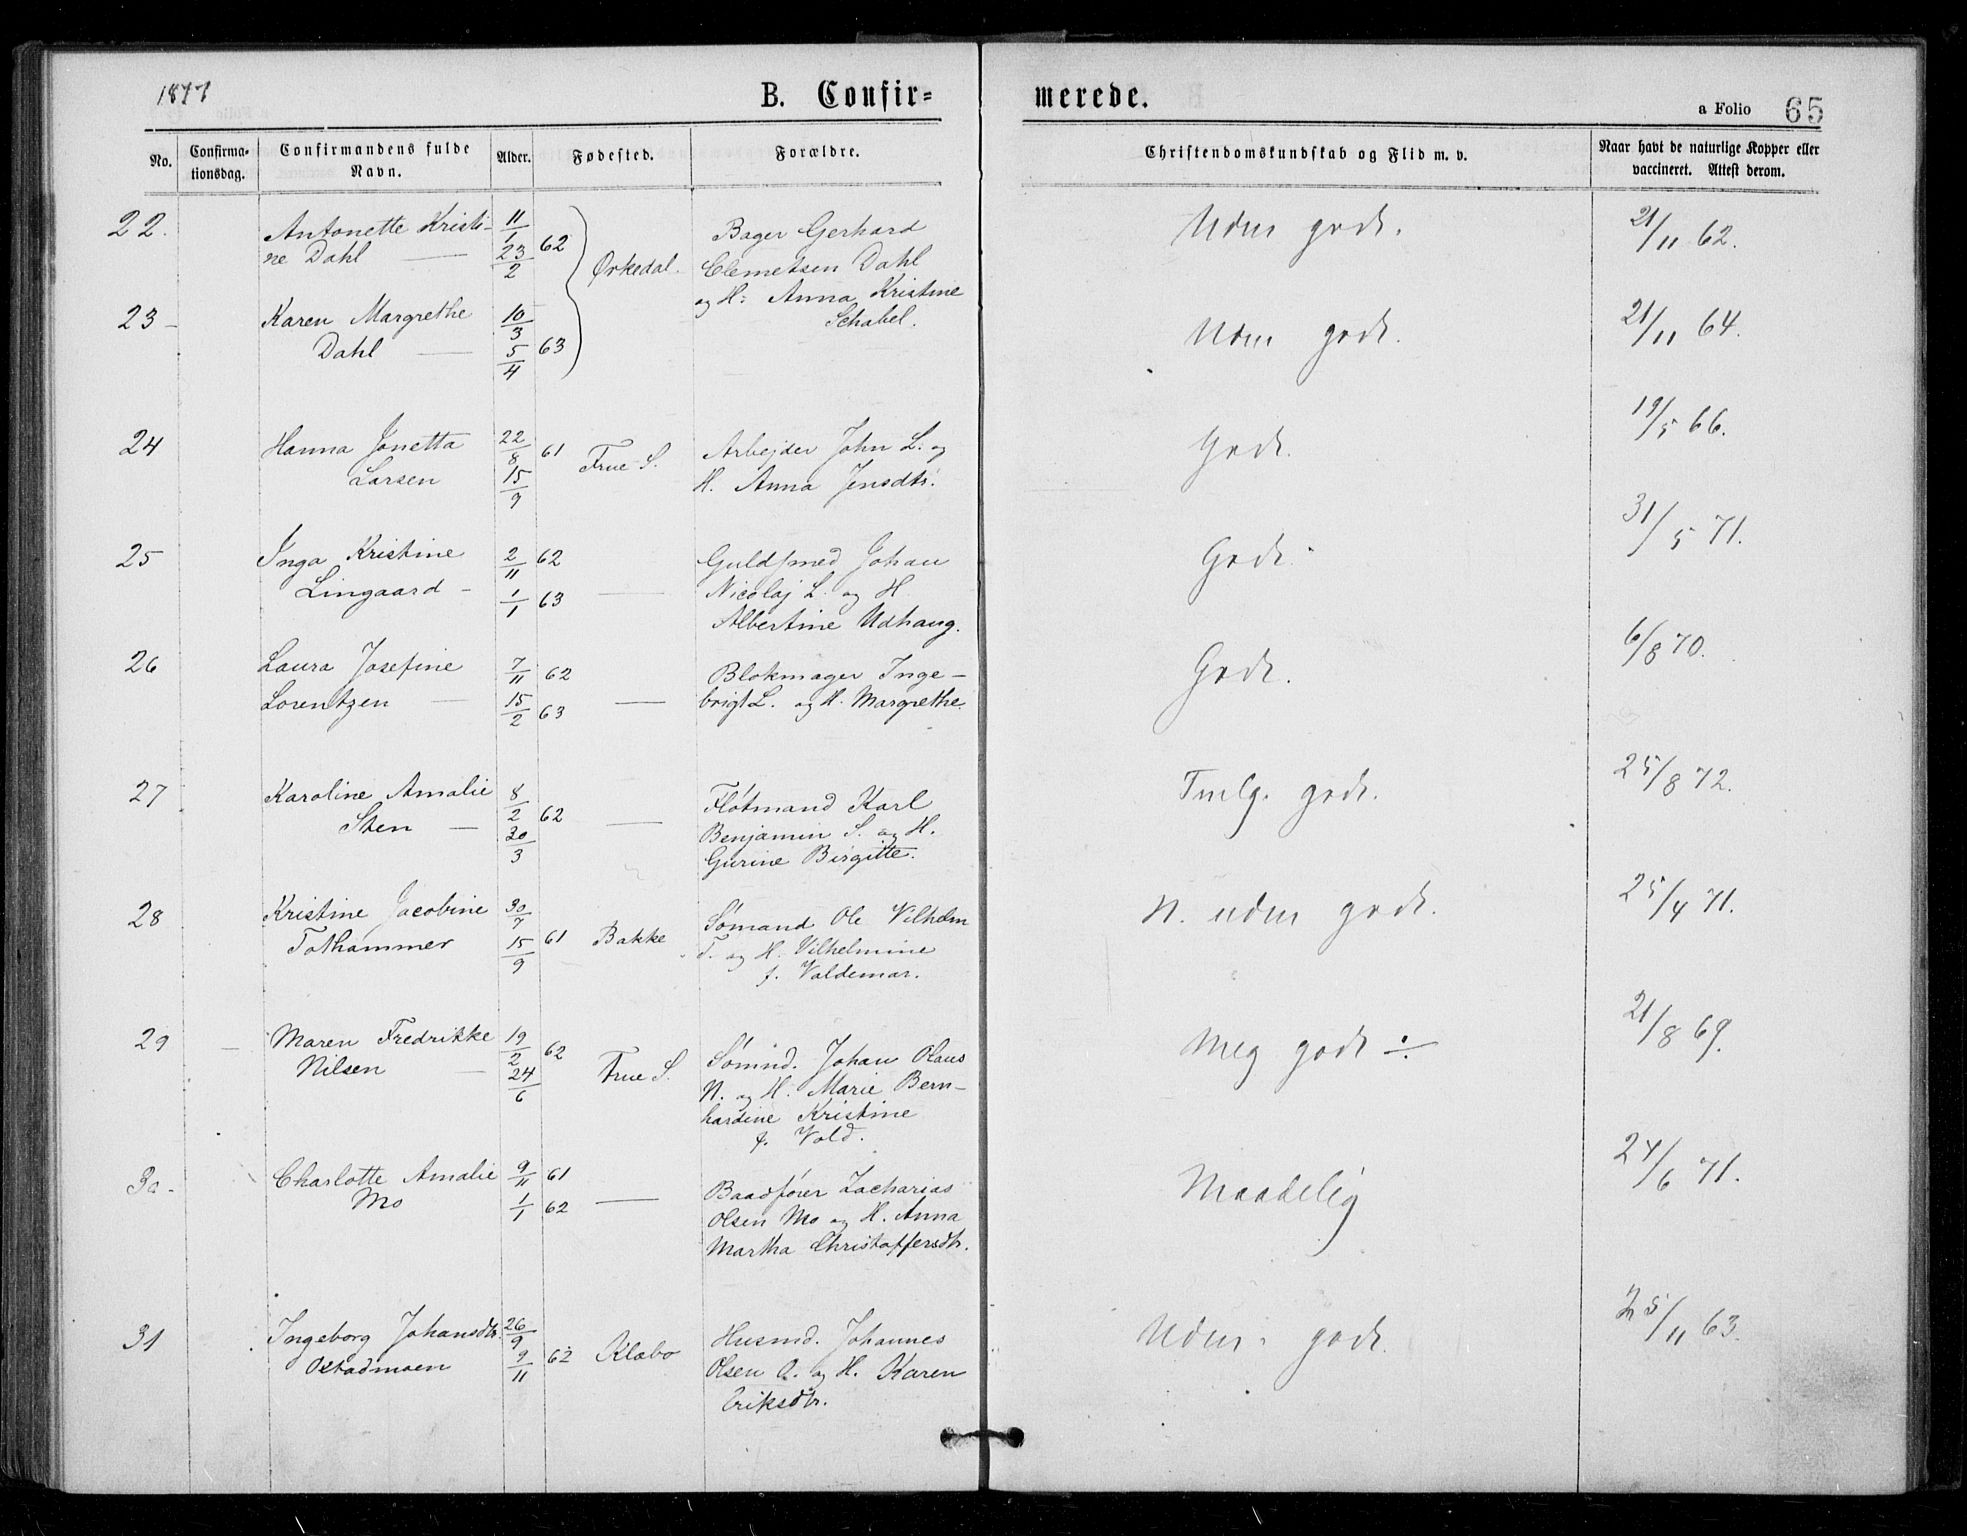 1877
B. Confir= merede.
a Folio 65
No.
Confirma-
tionsdag.
Confirmandens fulde
Navn.
Alder.
Fødested.
Forældre.
Christendomskundskab og Flid m. v.
Naar havt de naturlige Kopper eller
vaccineret. Attest derom.
22. Antonette Kristi- 11/1 Bager Gerhard Udm godt. 21/11 62.
ne Dahl — 23/2 62 Ørkedal. Clemetsen Dahl
og H: Anna Kristine
Schabel.
23 - Karen Margrethe 10/3 Udm godt. 21/11 64.
Dahl — 5/4 63
24 Hanna Jonetta 22/8 61 Frue S. Arbejder John L. og Godt. 19/5 66.
Larsen 15/9 H. Anna Jensdtr.
25 Inga Kristine 2/11 62 Guldsmed Johan Godt. 31/5 71.
Lingaard - 1/1 63 — Nicolaj L. og H.
Albertine Udhaug.
26 Laura Josefine 7/11 62 Blokmager Inge- Godt. 6/8 70.
Lorentzen — 15/2 63 — brigt L. og H. Margrethe.
27 Karoline Amalie 8/2 62 — Fløtmand Karl Tmlg. godt. 25/8 72.
Sten — 30/3 Benjamin S. og H.
Gurine Birgitte.
28 Kristine Jacobine 30/7 Sømand Ole Vilhelm N. udm godt. 25/4 71.
Tothammer 15/9 61 Bakke T. og H. Vilhelmine
f. Valdemar.
29 Maren Fredrikke 19/2 62 Frue S. Sømnd. Johan Olaus Meg godt ÷ 21/8 69.
Nilsen — 24/6 N. og H. Marie Bern-
hardine Kristine
f. Vold.
30 - Charlotte Amalie 9/11 61 Baadfører Zacharias Maadelig 24/6 71.
Mo 1/1 62 — Olsen Mo og H. Anna
Martha Christoffersdtr.
31 Ingeborg Johansdtr. 26/9 Husmd. Johannes Udm. godt. 25/11 63.
Ostadmoen 9/11 62 Klæbo Olsen O. og H. Karen
Eriksdtr.